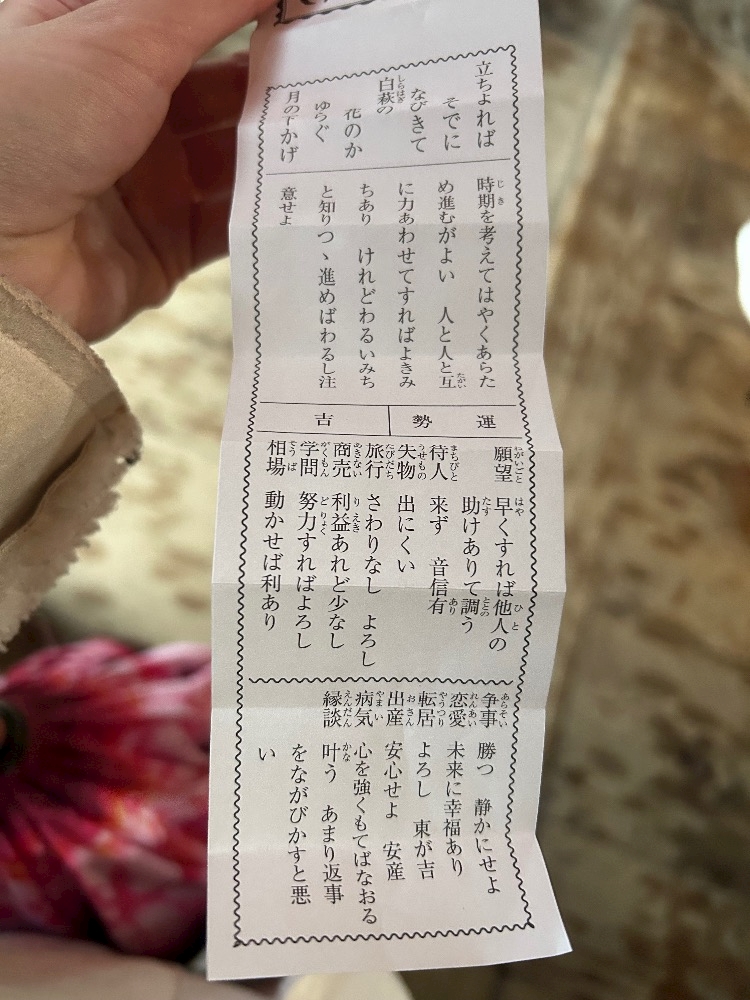 立ちよれば
そでに
なびきて
白萩の
花のか
ゆらぐ
月の下かげ
時期を考えてはやくあらた
め進むがよい 人と人と互
に力あわせてすればよきみ
ちあり けれどわるいみち
と知りつゝ進めばわるし注
意せよ
運勢 吉
願望 早くすれば他人の
助けありて調う
待人 来ず 音信有
失物 出にくい
旅行 さわりなし よろし
商売 利益あれど少なし
学問 努力すればよろし
相場 動かせば利あり
争事 勝つ 静かにせよ
恋愛 未来に幸福あり
転居 よろし 東が吉
出産 安心せよ 安産
病気 心を強くもてばなおる
縁談 叶う あまり返事
をながびかすと悪
い